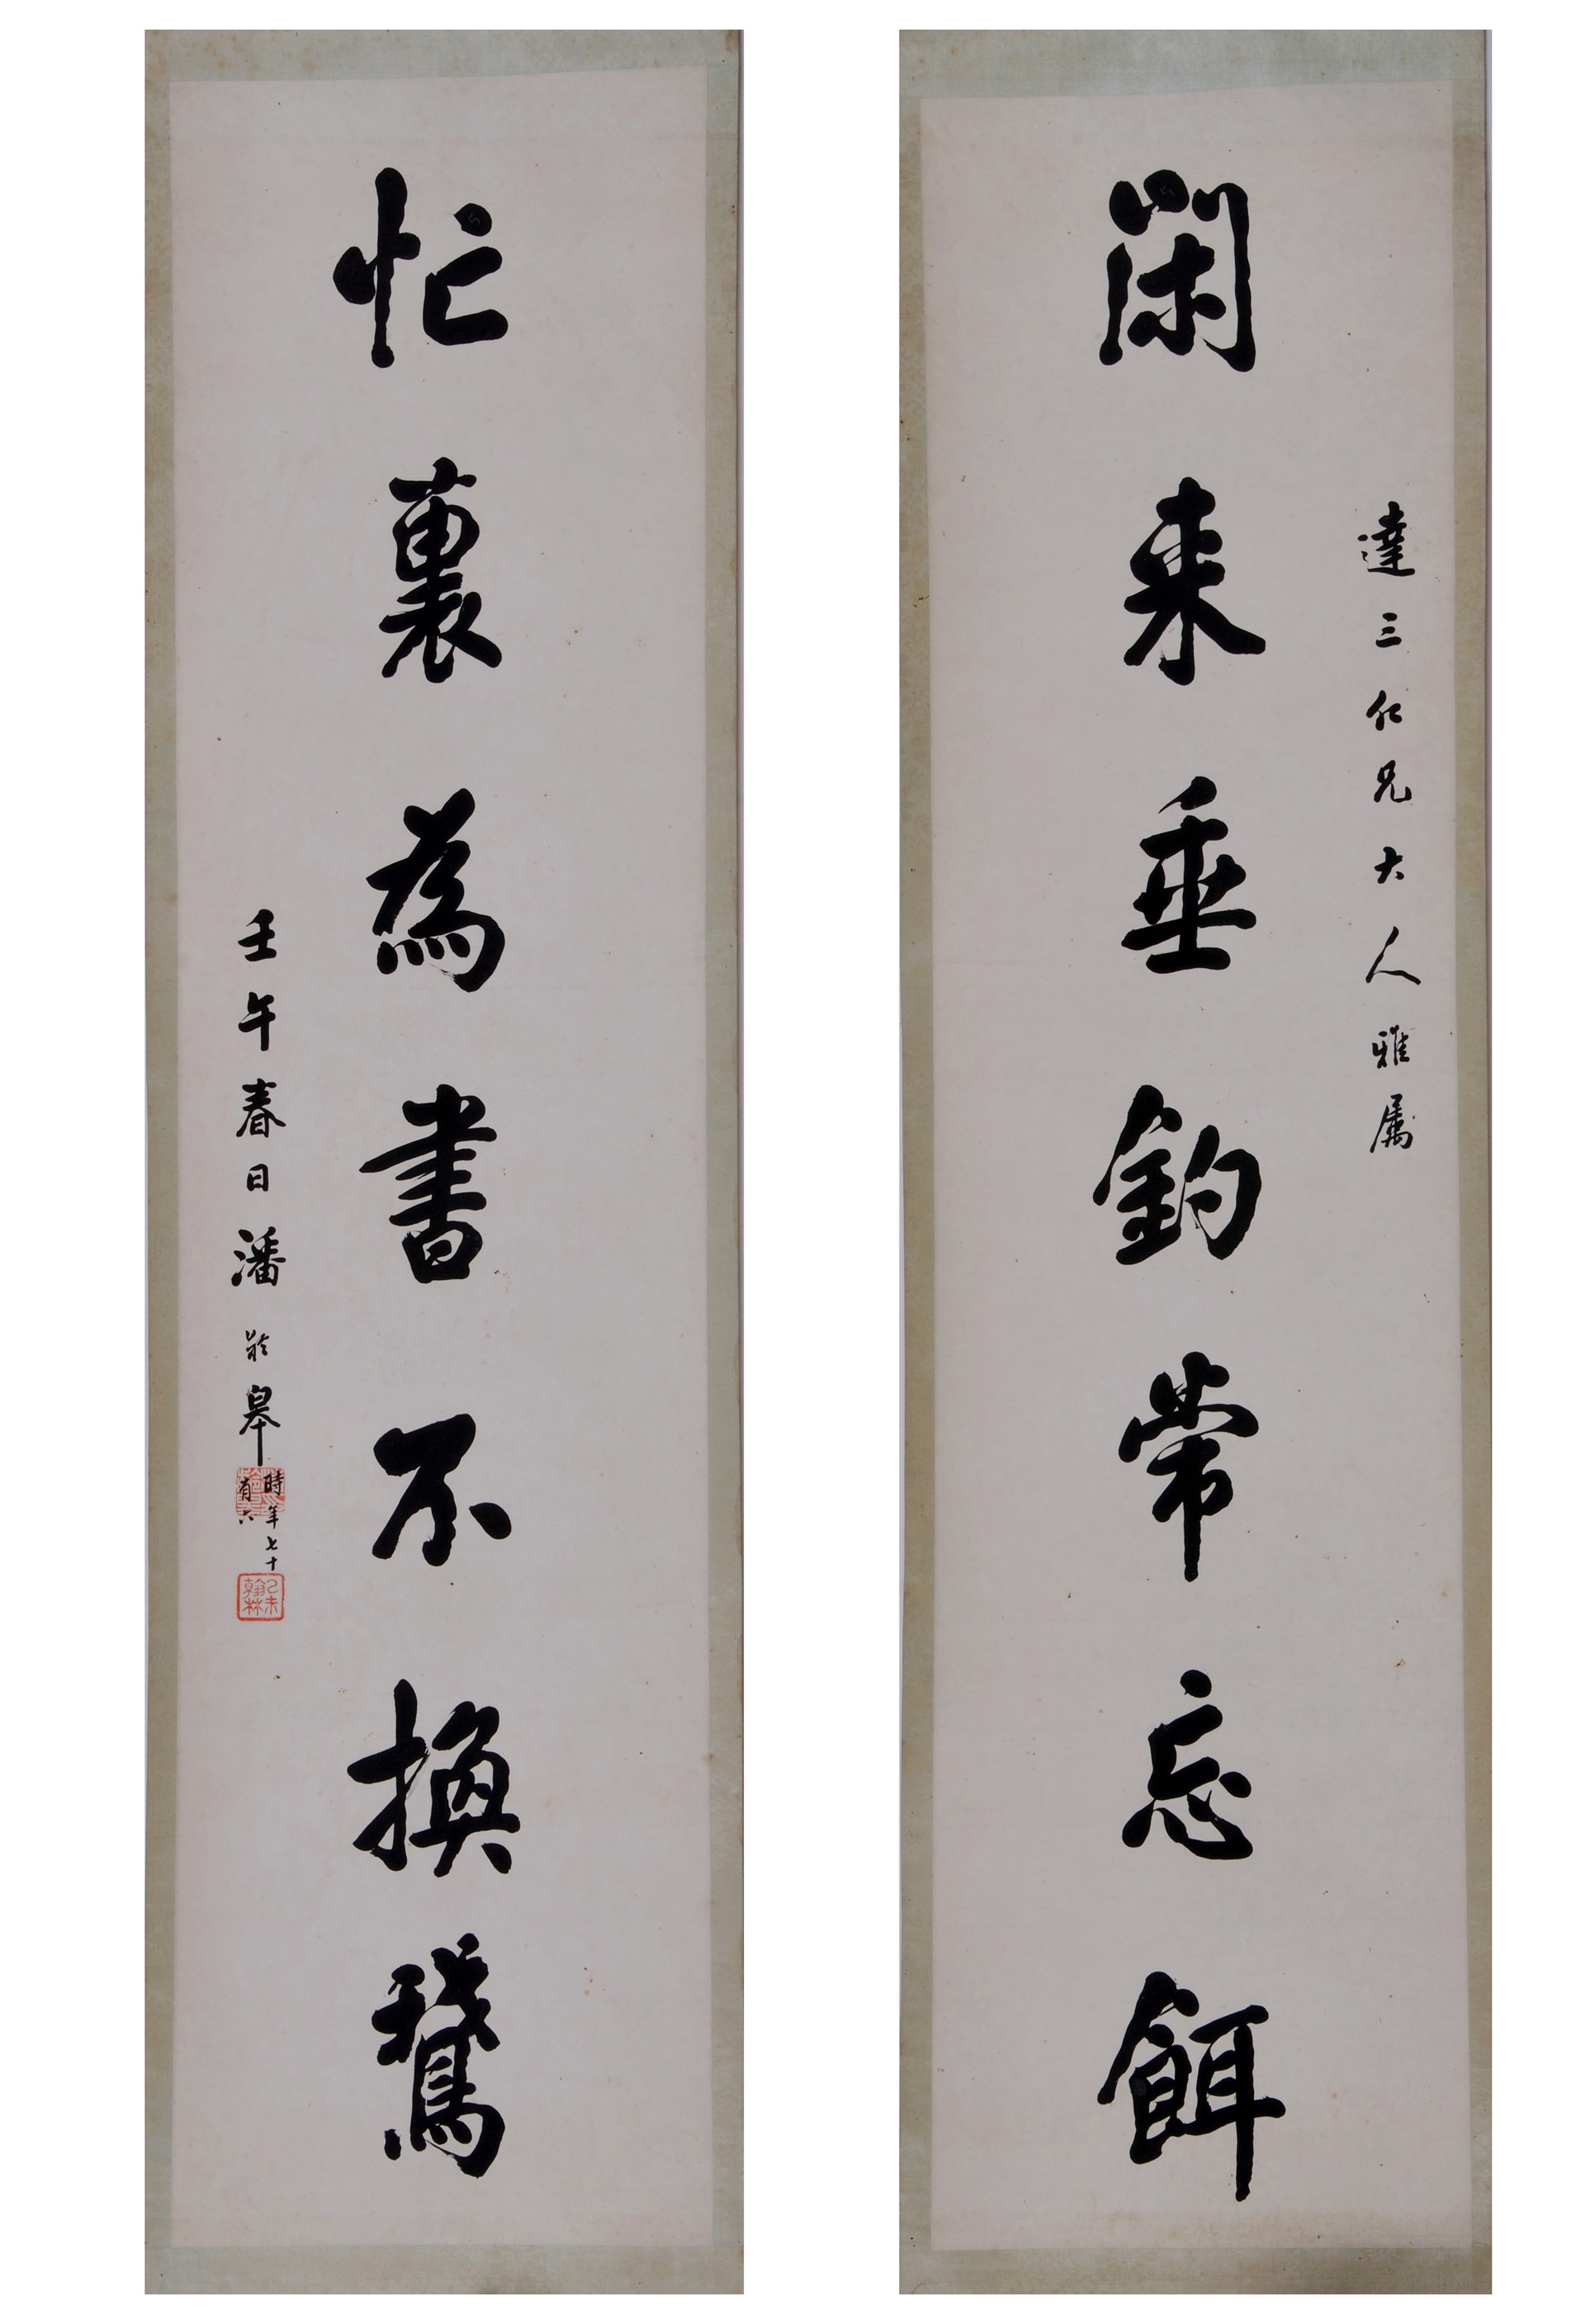 達三仁兄大人雅屬
閑来垂釣常忘餌
忙裏為書不換鵞
壬午春日潘齡皋
時年七十
有六
乙未
翰林